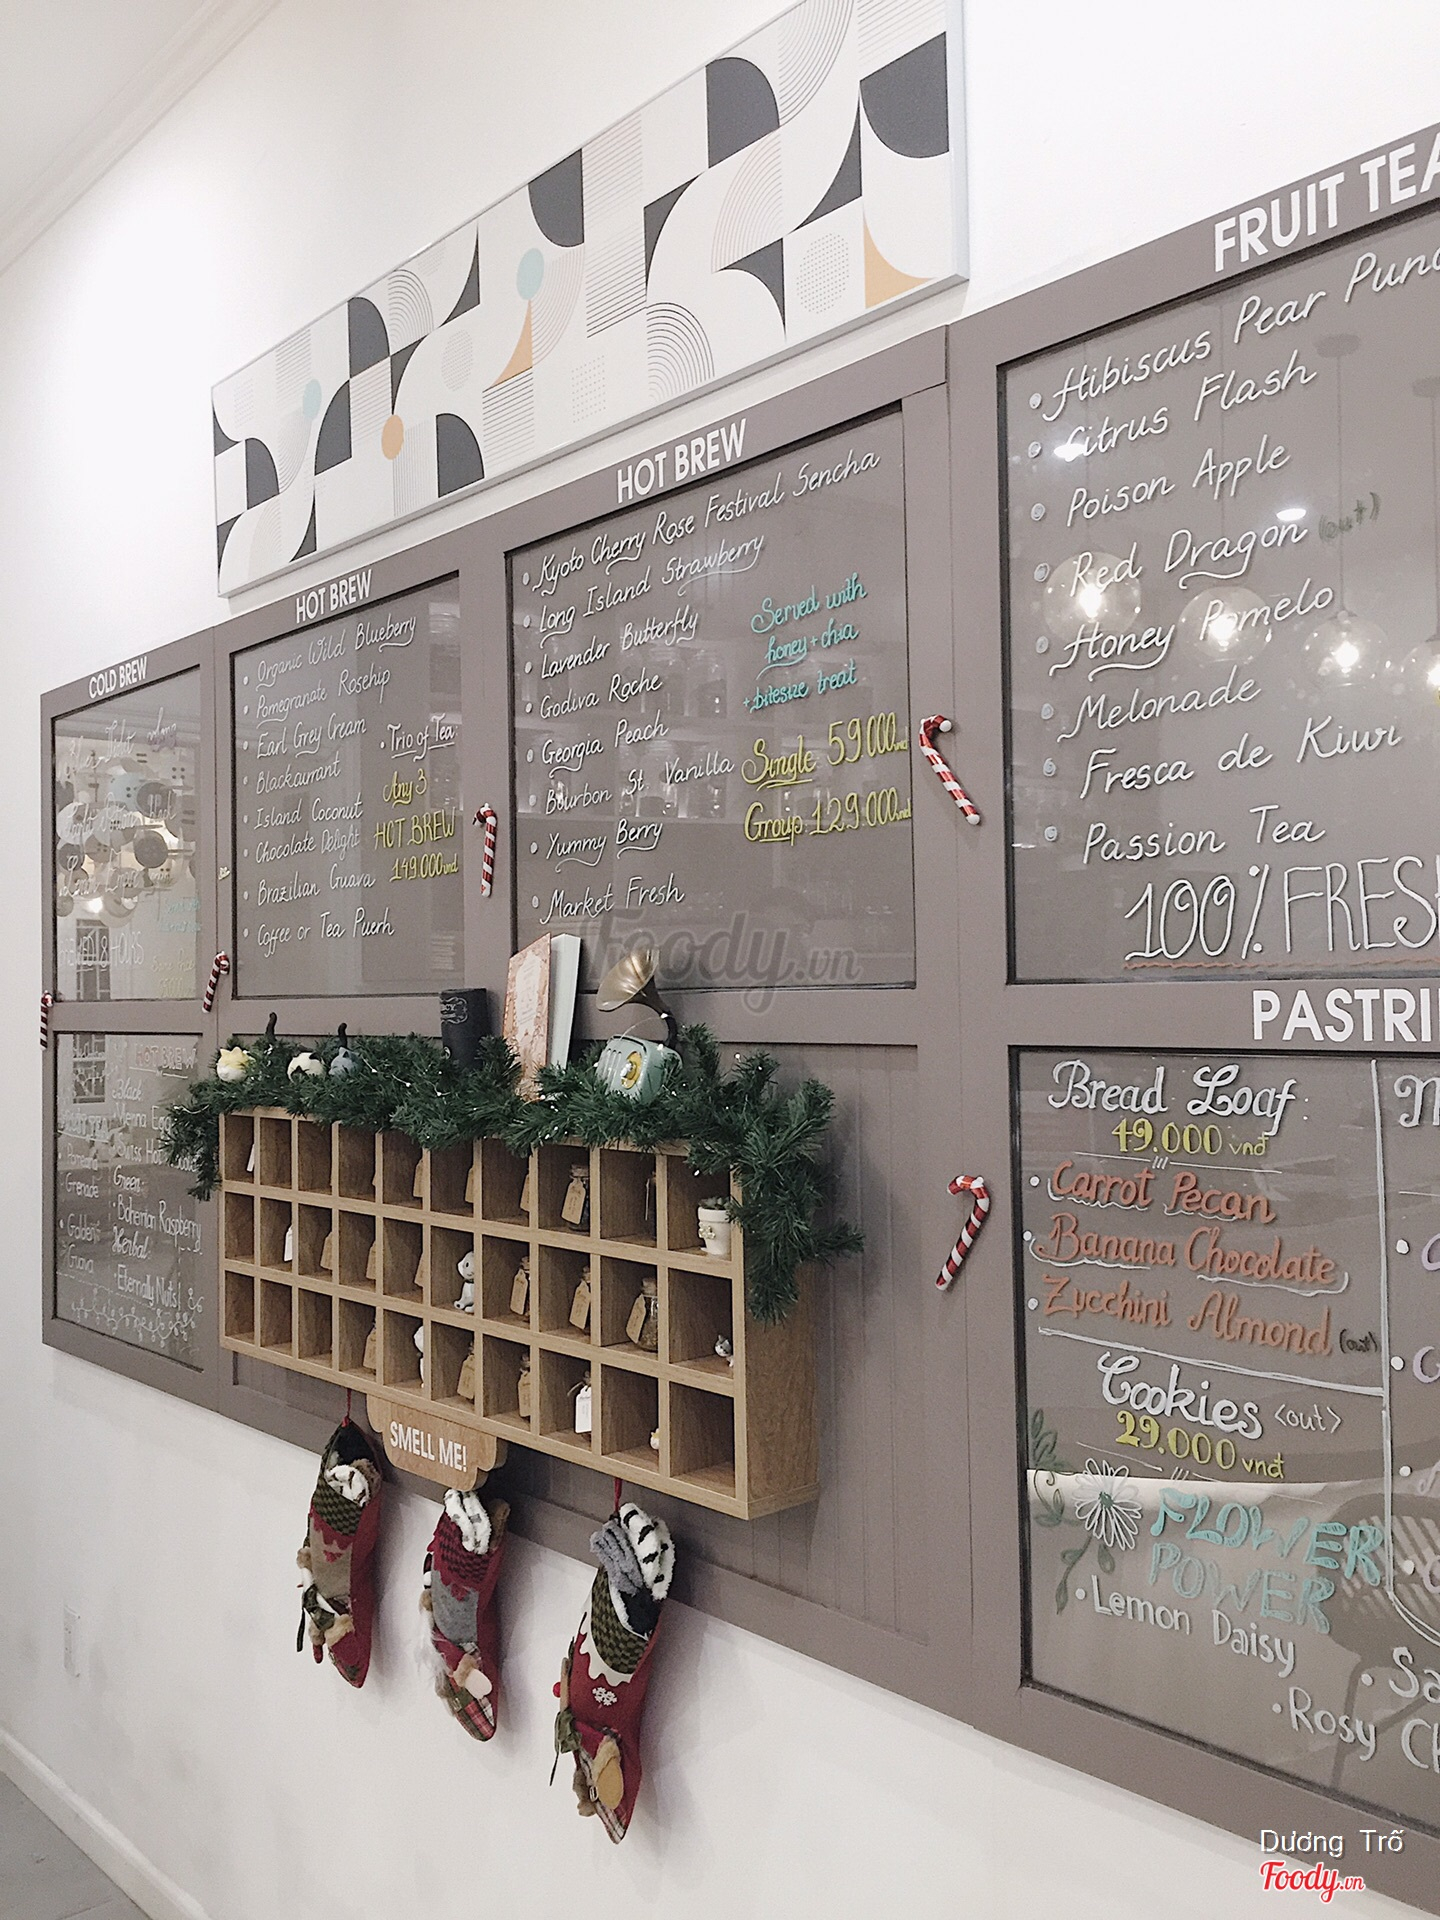 COLD BREW
HOT BREW
Organic Wild Blueberry
Pomegranate Rosehip
Earl Grey Cream
Blackcurrant
Island Coconut
Chocolate Delight
Brazilian Guava
Coffee or Tea Puerh
Trio of Tea:
Any 3
HOT BREW
149.000vnd
HOT BREW
Kyoto Cherry Rose Festival Sencha
Long Island Strawberry
Lavender Butterfly
Godiva Roche
Georgia Peach
Bourbon St. Vanilla
Yummy Berry
Market Fresh
Served with
honey + chia
+ bitesize treat
Single 59.000vnd
Group 129.000vnd
FRUIT TEA
Hibiscus Pear Punc
Citrus Flash
Poison Apple
Red Dragon (out)
Honey Pomelo
Melonade
Fresca de Kiwi
Passion Tea
100% FRESH
HOT BREW
Black:
Vienna
Swiss Hot
Green:
Bohemian Raspberry
Herbal:
Eternally Nuts!
Grenade
Golden
Guava
SMELL ME!
PASTRI
Bread Loaf:
49.000 vnđ
Carrot Pecan
Banana Chocolate
Zucchini Almond (out)
Cookies <out>
29.000 vnđ
FLOWER
POWER
Lemon Daisy
Sa
Rosy Ch
Foody.vn
Dương Trố
Foody.vn